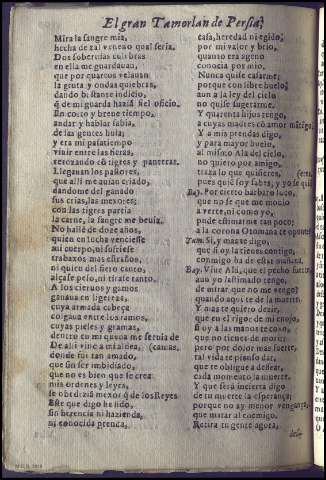 El gran Tamorlan de Persia.
Mira la sangre mia,
hecha de tal veneno qual seria.
Dos soberuias culebras
en ella me guardauan,
que por quartos velauan
la gruta y ondas quiebras,
dando bastante indicio,
q̃ de mi guarda haziã fiel oficio.
En corto y breue tiempo,
andar y hablar sabia,
de las gentes huia;
y era mi passatiempo
viuir entre las fieras,
retozando cõ tigres y panteras.
Llegauan los pastores,
que alli me auian criado,
dandome del ganado
sus crias, las mejores;
con las tigres partia
la carne, la sangre me beuia.
No hallè de doze años,
quien en lucha venciesse
mi cuerpo, ni sufriesse
trabaxos mas estraños,
ni quien del fiero canto,
alçasse peso, ni tirasse tanto.
A los cieruos y gamos
ganaua en ligereza,
cuya armada cabeça
colgaua entre los ramos,
cuyas pieles y gramas,
dentro en mi cueua me seruia de
De alli vine a mi aldea, (camas.
donde fui tan amado,
que sin ser imbidiado,
que no es bien que se crea
mis ordenes y leyes,
se obedeciã mejor q̃ de los Reyes
Este que digo he sido,
sin herencia ni hazienda,
ni conocida prenda,
casa, heredad ni egido;
por mi valor y brio,
quanto era ageno
conocia por mio.
Nunca quise casarme;
porque con libre buelo;
aun a la ley del cielo
no quise sugetarme.
Y quarenta hijos tengo,
a cuyas madres cõ amor mãtẽgo.
Y a mis prendas digo,
y para mayor buelo,
al mismo Ala del cielo,
no quiero por amigo,
traza lo que quisieres,
pues quiẽ soy sabes, y yo sè quiẽ
Bay. Por cierto barbaro loco,
que no se que me mouio
a verte, ni como yo,
pude estimarte tan poco;
a la corona Otomana te opones
Tam. Si, y mas te digo,
que si oy la tienes contigo,
conmigo ha de estar mañana.
Bay. Viue Ala, que el pecho fuerte
aun yo lastimado tengo,
de mirar, que no me vengo,
quando aqui te dè la muerte.
Y mas te quiero dezir,
que en el rigor de mi enojo,
si oy a las manos te cojo,
que no tienes de morir:
pero por dolor mas fuerte,
tal vida te pienso dar,
que te obligue a dessear,
cada momento la muerte.
Y que serà incierta digo
de tu muerte la esperança;
porque no ay menor vengança,
que matar al enemigo.
Retira tu gente agora,